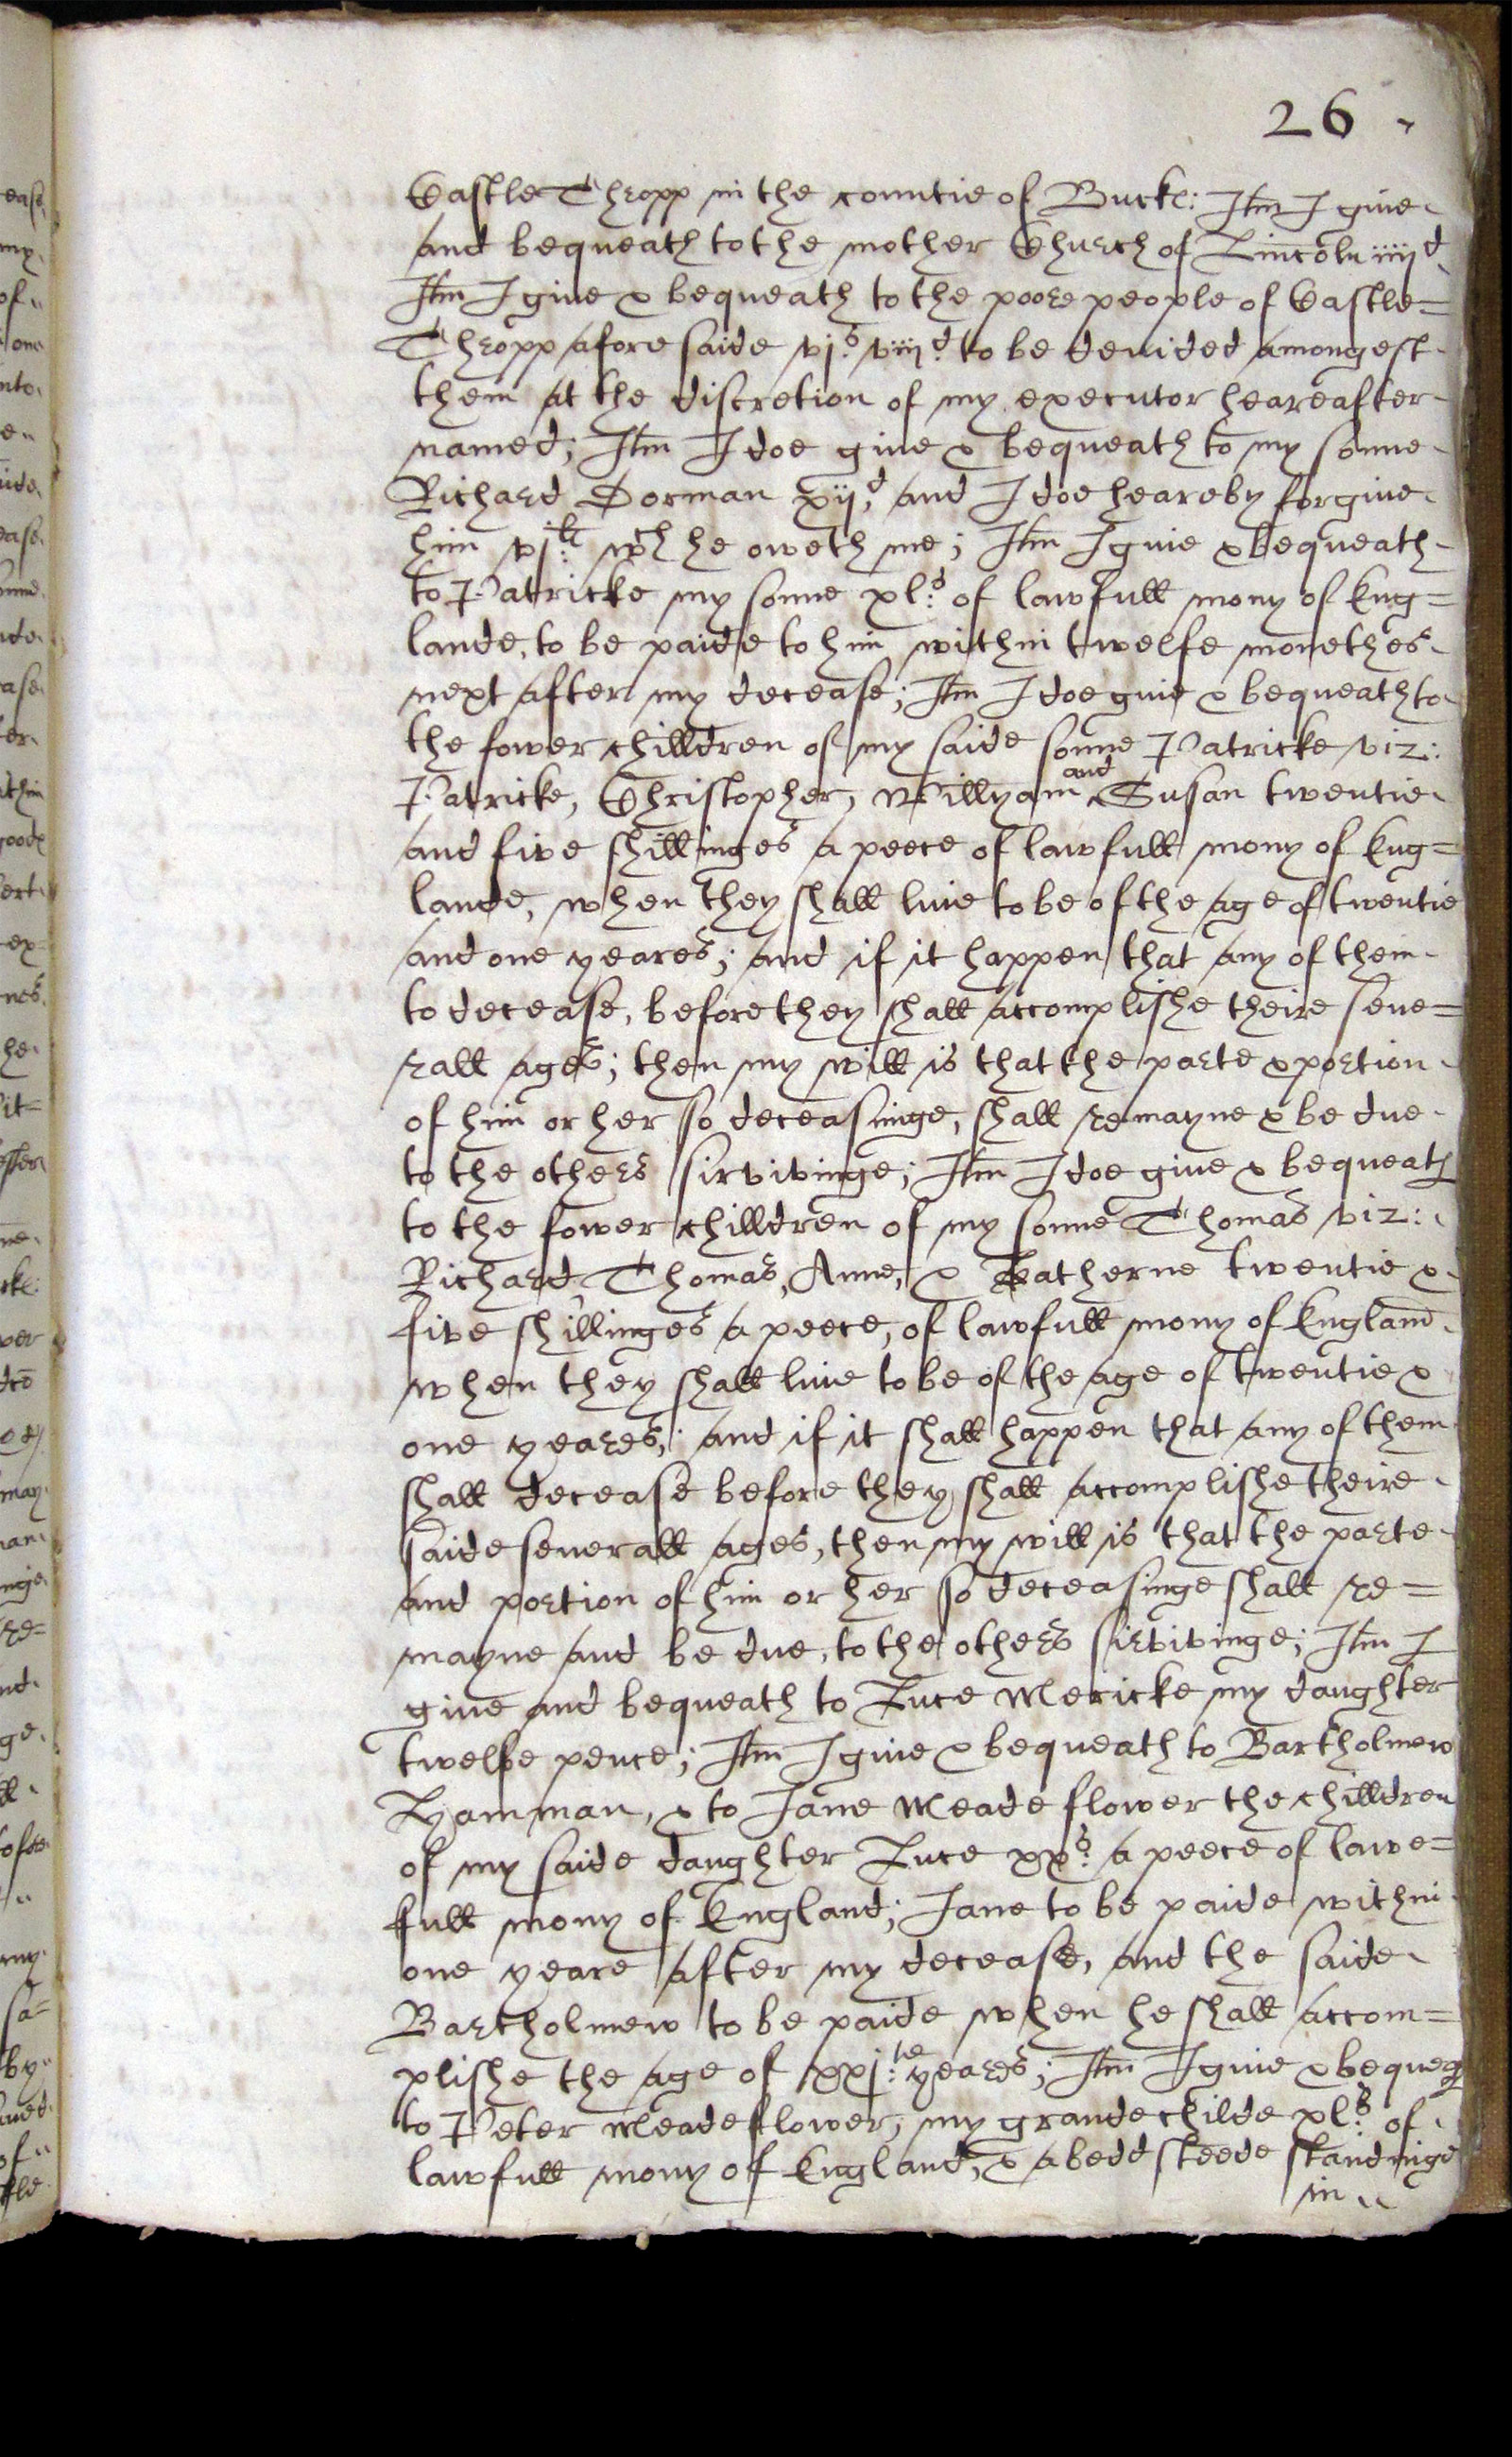 26
Castle Thropp in the countie of Buck: Itm I give
and bequeath to the mother Church of Lincoln iiijd
Itm I give & bequeath to the poore people of Castle=
Thropp afore saide vjs: viijd: to be devided amongest
them at the discretion of my executor heareafter
named; Itm I doe give & bequeath to my sonne
Richard Dorman xijd, and I doe heareby forgive
him vjli: wch he oweth me; Itm I give & bequeath
to Patricke my sonne xls: of lawfull mony of Eng=
lande, to be paide to him within twelfe monethes
next after my decease; Itm I doe give & bequeath to
the fower chilldren of my saide sonne Patricke viz:
Patricke, Christopher, Willyam and Susan twentie
and five shillinges a peece of lawfull mony of Eng=
lande, when they shall live to be of the age of twentie
and one yeares; and if it happen that any of them
to decease, before they shall accomplishe theire seve=
rall ages; then my will is that the parte & portion
of him or her so deceasinge, shall remayne & be due
to the others sirvivinge; Itm I doe give & bequeath
to the fower chilldren of my sonne Thomas viz:
Richard, Thomas, Anne, & Katherne twentie &
five shillinges a peece, of lawfull mony of England
when they shall live to be of the age of twentie &
one yeares; and if it shall happen that any of them
shall decease before they shall accomplishe theire
saide severall ages, then my will is that the parte
and portion of him or her so deceasinge shall re=
mayne and be due, to the others sirvivinge; Itm I
give and bequeath to Luce Mericke my daughter
twelve pence; Itm I give & bequeath to Bartholmew
Hamman, & to Jane Meade flower the chilldren
of my saide daughter Luce xxs: a peece of lawe=
full mony of England; Jane to be paide within
one yeare after my decease, and the saide
Bartholmew to be paide when he shall accom=
plishe the age of xxj:te yeares; Itm I give & bequeq
to Peter Meadeflower, my grandechilde xls: of
lawfull mony of England, & a bedd steede standinge
in